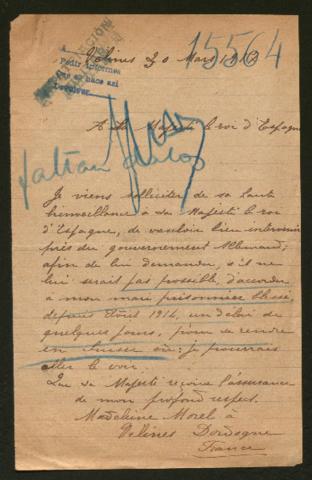 Vélines 20 Mars
15564
Pedir informes
A sa Majesté le roi d'Espagne
faltan datos
Je viens solliciter de sa haute
bienveillance à sa Majesté le roi
d'Espagne, de vouloir bien intervenir
près du gouvernement Allemand;
afin de lui demander, s'il ne
lui serait pas possible, d'accorder
à mon mari prisonnier blessé
depuis Août 1914, un délai de
quelques jours, pour se rendre
en Suisse où: je pourrais
aller le voir.
Que sa Majesté reçoive l'assurance
de mon profond respect.
Madeleine Morel à
Vélines Dordogne
France